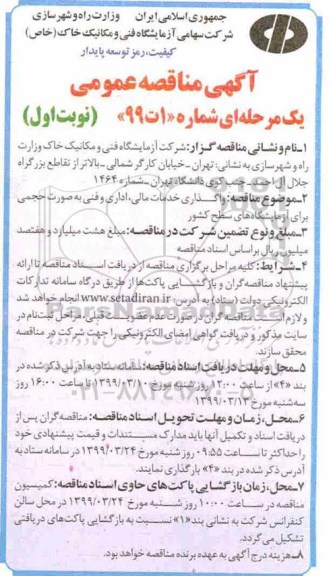 جمهوری اسلامی ایران    وزارت راه و شهرسازی
شرکت سهامی آزمایشگاه فنی و مکانیک خاک (خاص)
کیفیت، رمز توسعه پایدار
آگهی مناقصه عمومی
یک مرحله‌ای شماره «۱ت۹۹» (نوبت اول)
۱-نام و نشانی مناقصه گزار: شرکت آزمایشگاه فنی و مکانیک خاک وزارت
راه و شهرسازی به نشانی: تهران -خیابان کارگر شمالی -بالاتر از تقاطع بزرگراه
جلال آل احمد- جنب کوی دانشگاه تهران -شماره ۱۴۶۴
۲-موضوع مناقصه: واگذاری خدمات مالی، اداری و فنی به صورت حجمی
برای آزمایشگاه‌های سطح کشور
۳-مبلغ و نوع تضمین شرکت در مناقصه: مبلغ هشت میلیارد و هفتصد
میلیون ریال بر اساس اسناد مناقصه
۴-شرایط: کلیه مراحل برگزاری مناقصه از دریافت اسناد مناقصه تا ارائه
پیشنهاد مناقصه گران و بازگشایی پاکت‌ها از طریق درگاه سامانه تدارکات
الکترونیکی دولت (ستاد) به آدرس: www.setadiran.ir انجام خواهد شد
و لازم است مناقصه گران در صورت عدم عضویت قبلی، مراحل ثبت نام در
سایت مذکور و دریافت گواهی امضای الکترونیکی را جهت شرکت در مناقصه
محقق سازند.
۵-محل و مهلت دریافت اسناد مناقصه: سامانه ستاد به آدرس ذکر شده در
بند «۴» از ساعت ۱۲:۰۰ روز شنبه مورخ ۱۳۹۹/۰۳/۱۰ تا ساعت ۱۶:۰۰ روز
سه‌شنبه مورخ ۱۳۹۹/۰۳/۱۳
۶-محل، زمان و مهلت تحویل اسناد مناقصه: مناقصه گران پس از
دریافت اسناد و تکمیل آنها باید مدارک مستندات و قیمت پیشنهادی خود
را حداکثر تا ساعت ۰۹:۵۵ روز شنبه مورخ ۱۳۹۹/۰۳/۲۴ در سامانه ستاد به
آدرس ذکر شده در بند «۴» بارگذاری نمایند.
۷-محل، زمان بازگشایی پاکت‌های حاوی اسناد مناقصه: کمیسیون
مناقصه در ساعت ۱۰:۰۰ روز شنبه مورخ ۱۳۹۹/۰۳/۲۴ در محل سالن
کنفرانس شرکت به نشانی بند «۱» نسبت به بازگشایی پاکت‌های دریافتی
تشکیل می گردد.
۸-هزینه درج آگهی به عهده برنده مناقصه خواهد بود.